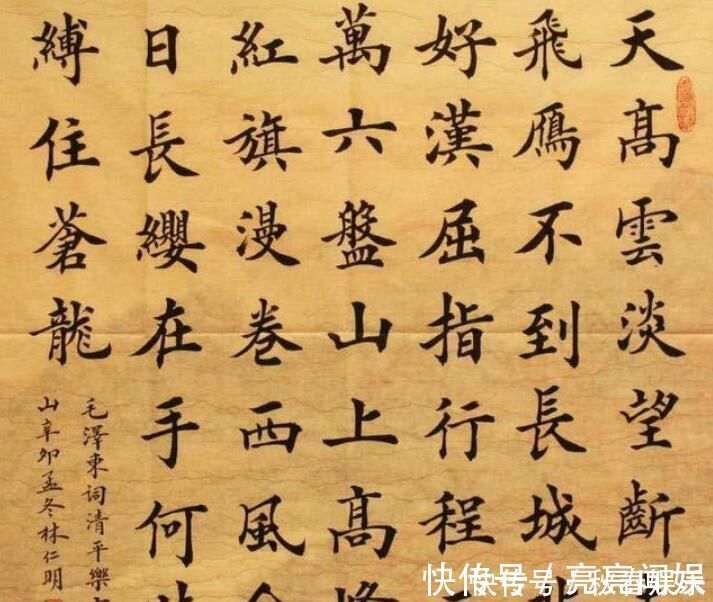 天髙雲淡望斷
飛鴈不到長城
好漢屈指行程
萬六盤山上髙
紅旗漫卷西風
日長纓在手何
縛住蒼龍
毛澤東詞清平樂
山辛卯孟冬林仁明
快传号/亮亮闻娱